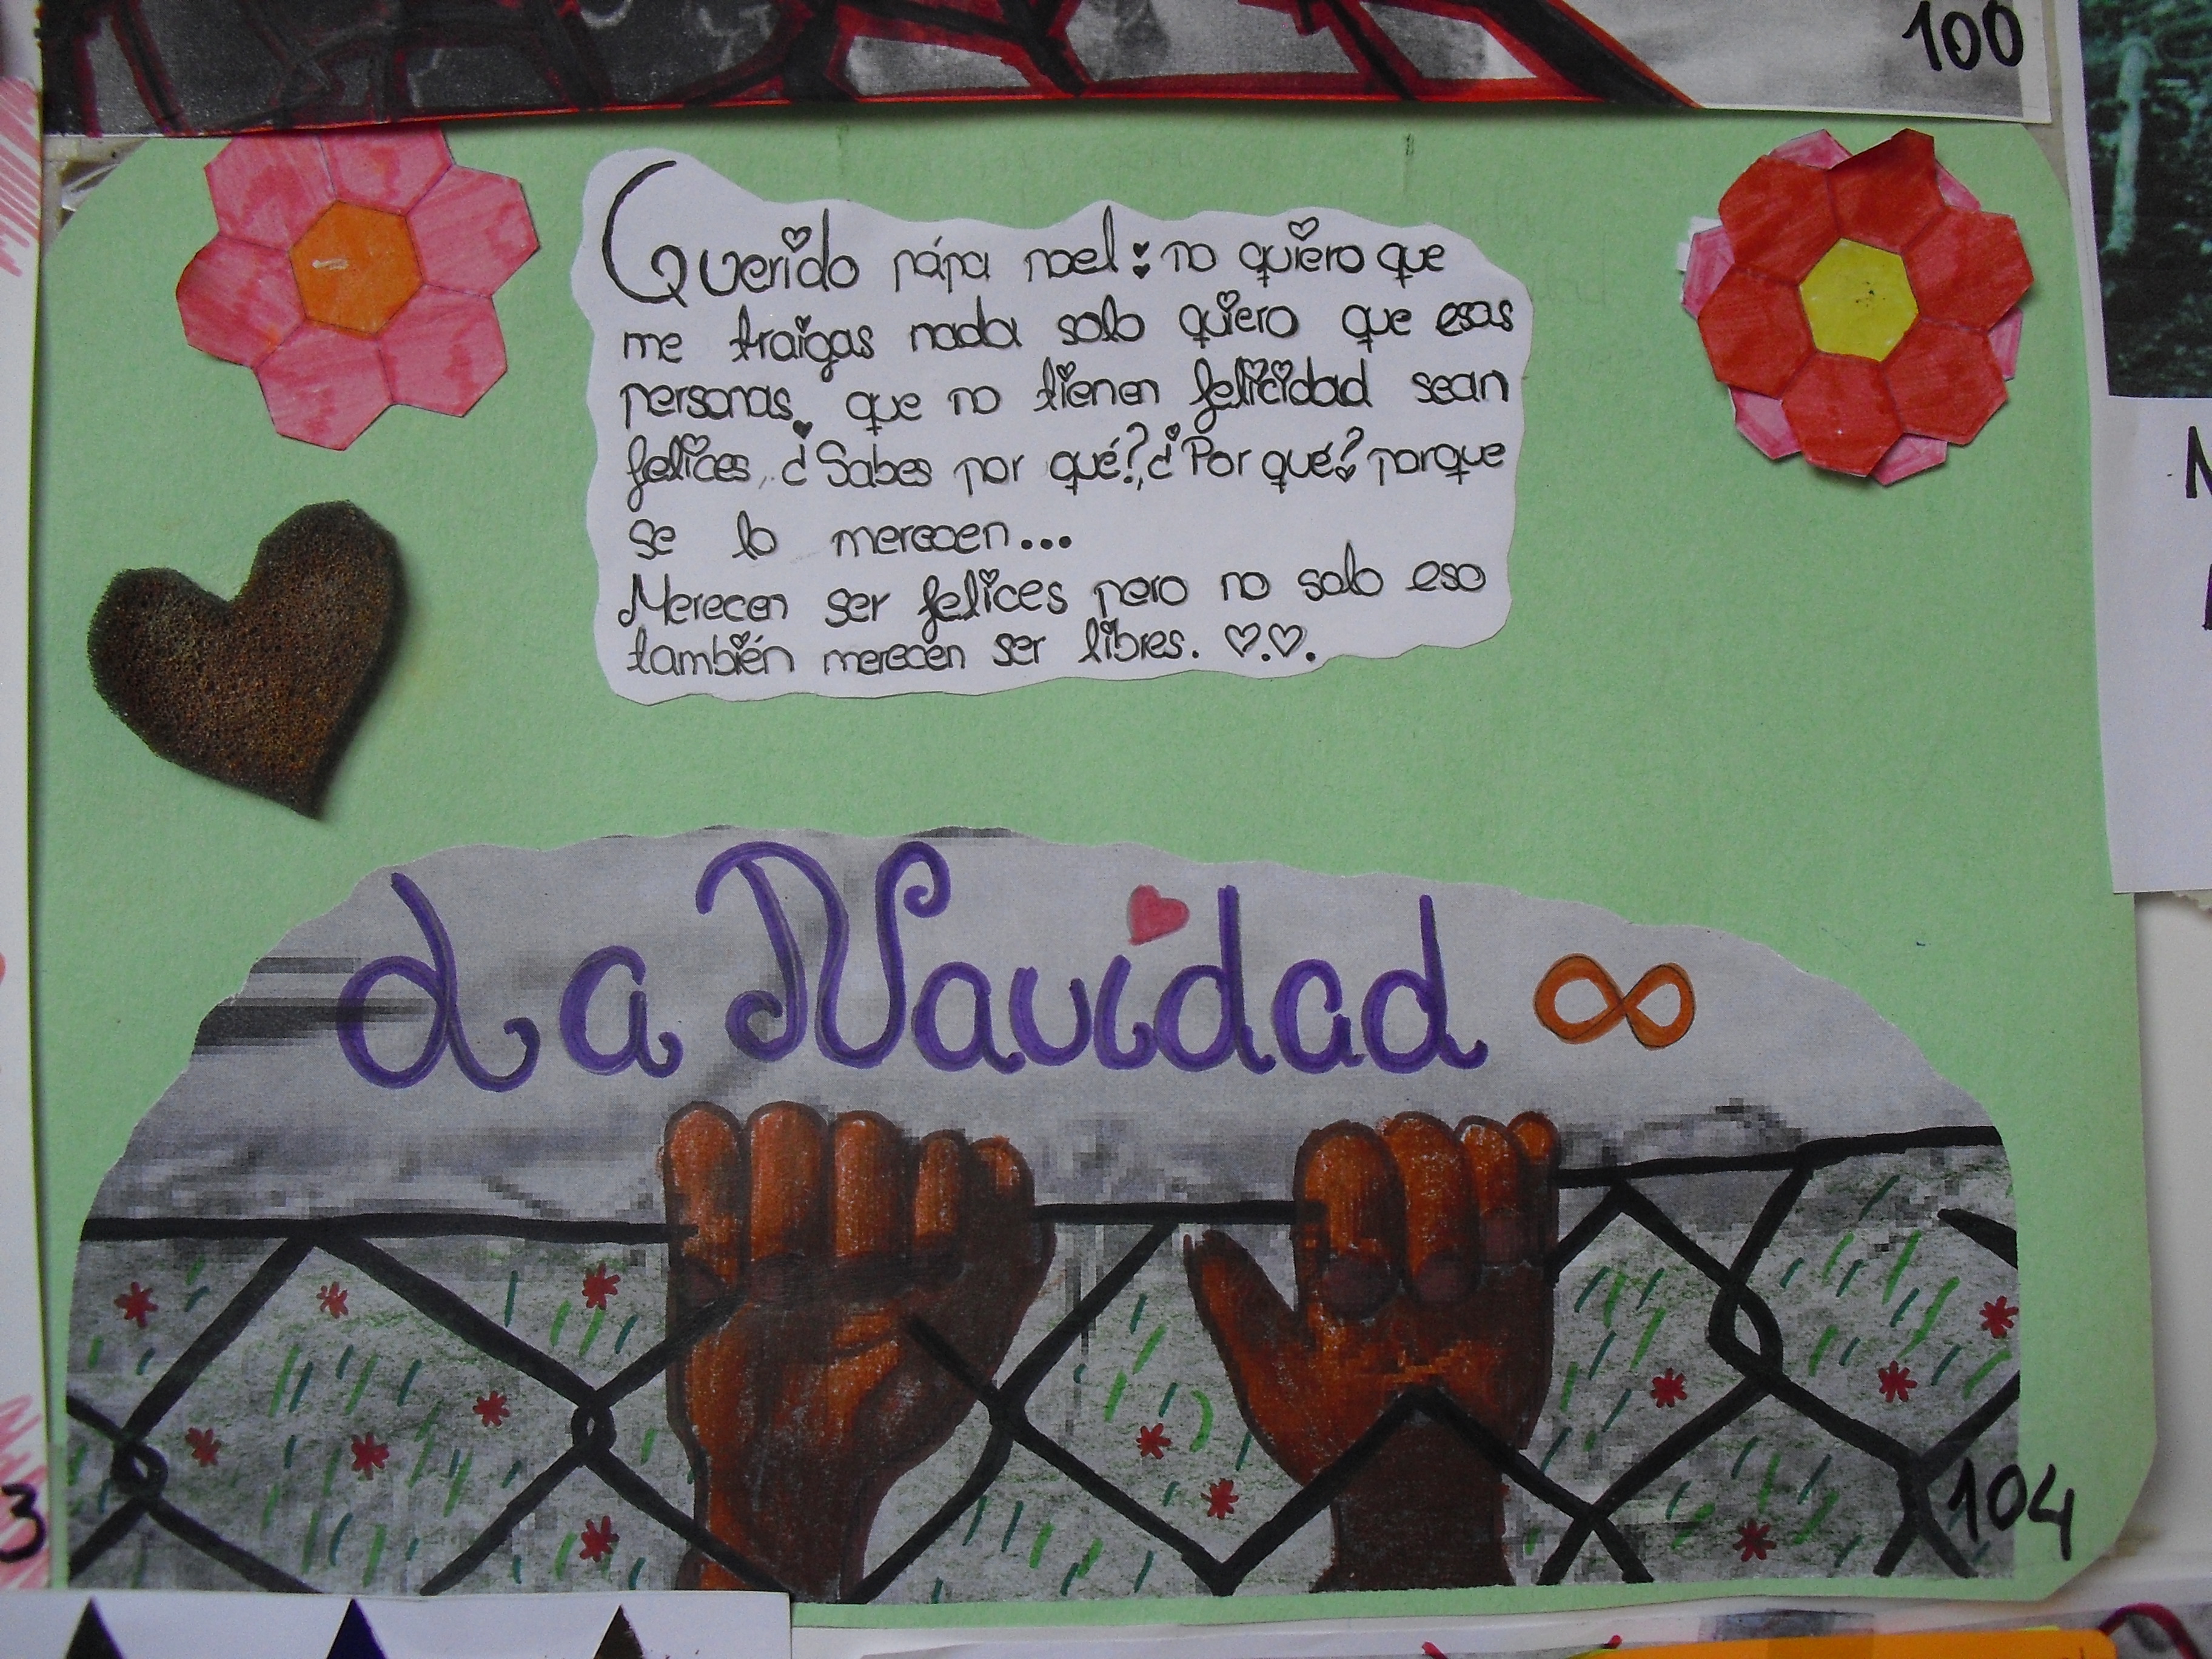 100
Querido pápa noel: no quiero que
me traigas nada solo quiero que esas
personas que no tienen felicidad sean
felices, ¿Sabes por qué?, ¿Por qué? porque
se lo merecen...
Merecen ser felices pero no solo eso
también merecen ser libres. ♡.♡.
La Navidad ∞
104
3